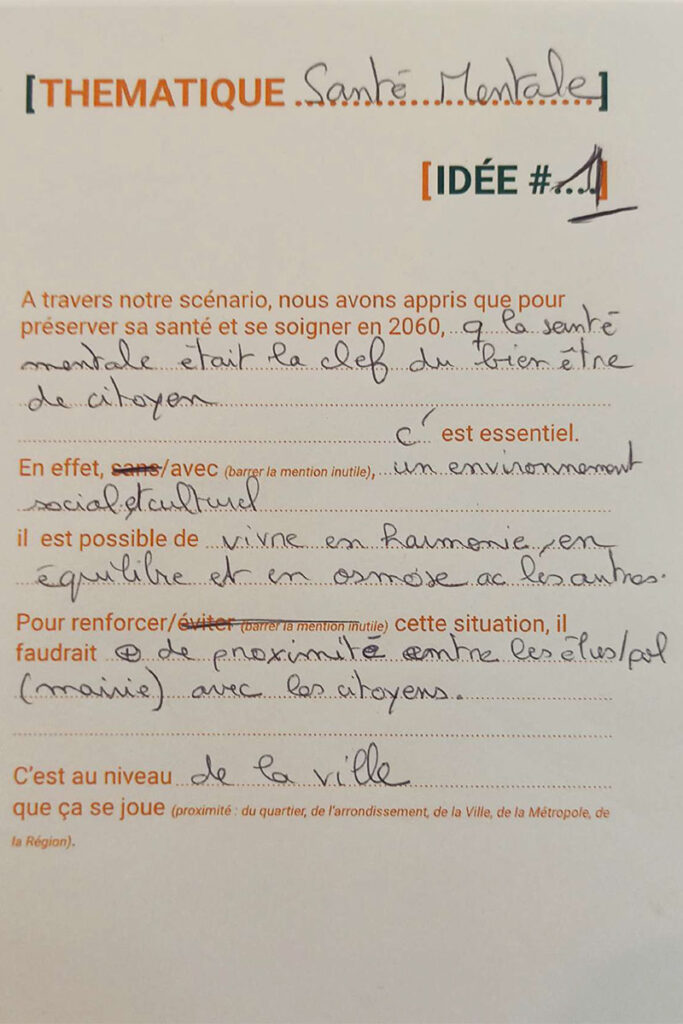 [THEMATIQUE Santé Mentale]
[IDÉE #1]
A travers notre scénario, nous avons appris que pour
préserver sa santé et se soigner en 2060, q la santé
mentale était la clef du bien être
de citoyen
c' est essentiel.
En effet, sans/avec (barrer la mention inutile), un environnement
social et culturel
il est possible de vivre en harmonie, en
équilibre et en osmose ac les autres.
Pour renforcer/éviter (barrer la mention inutile) cette situation, il
faudrait ⊕ de proximité entre les élus/pol
(mairie) avec les citoyens.
C'est au niveau de la ville
que ça se joue (proximité : du quartier, de l'arrondissement, de la Ville, de la Métropole, de
la Région).